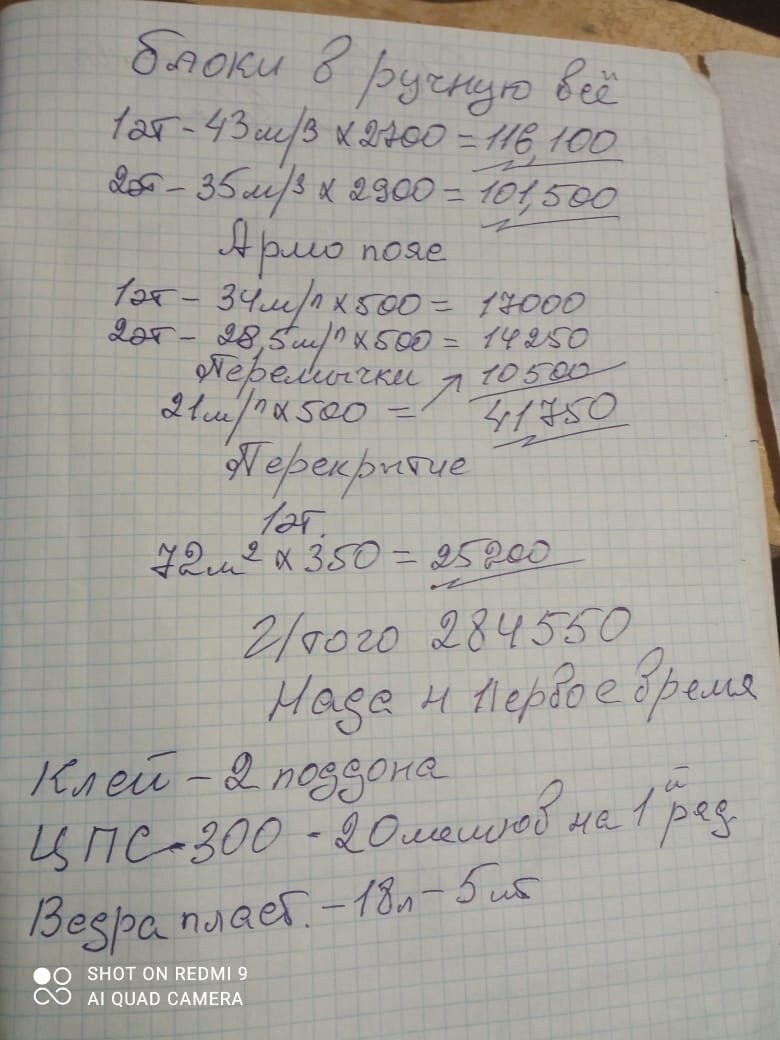 блоки в ручную всё
1эт - 43м/3 х 2700 = 116,100
2эт - 35м/3 х 2900 = 101,500
Армо пояс
1эт - 34м/п х 500 = 17000
2эт - 28,5м/п х 500 = 14250
Перемычки 10500
21м/п х 500 = 41750
Перекрытие
1эт.
72м2 х 350 = 25200
И/того 284550
Нада н Первое время
Клей - 2 поддона
ЦПС-300 - 20мешков на 1й ряд
Ведра пласт. - 18л - 5шт
SHOT ON REDMI 9
AI QUAD CAMERA